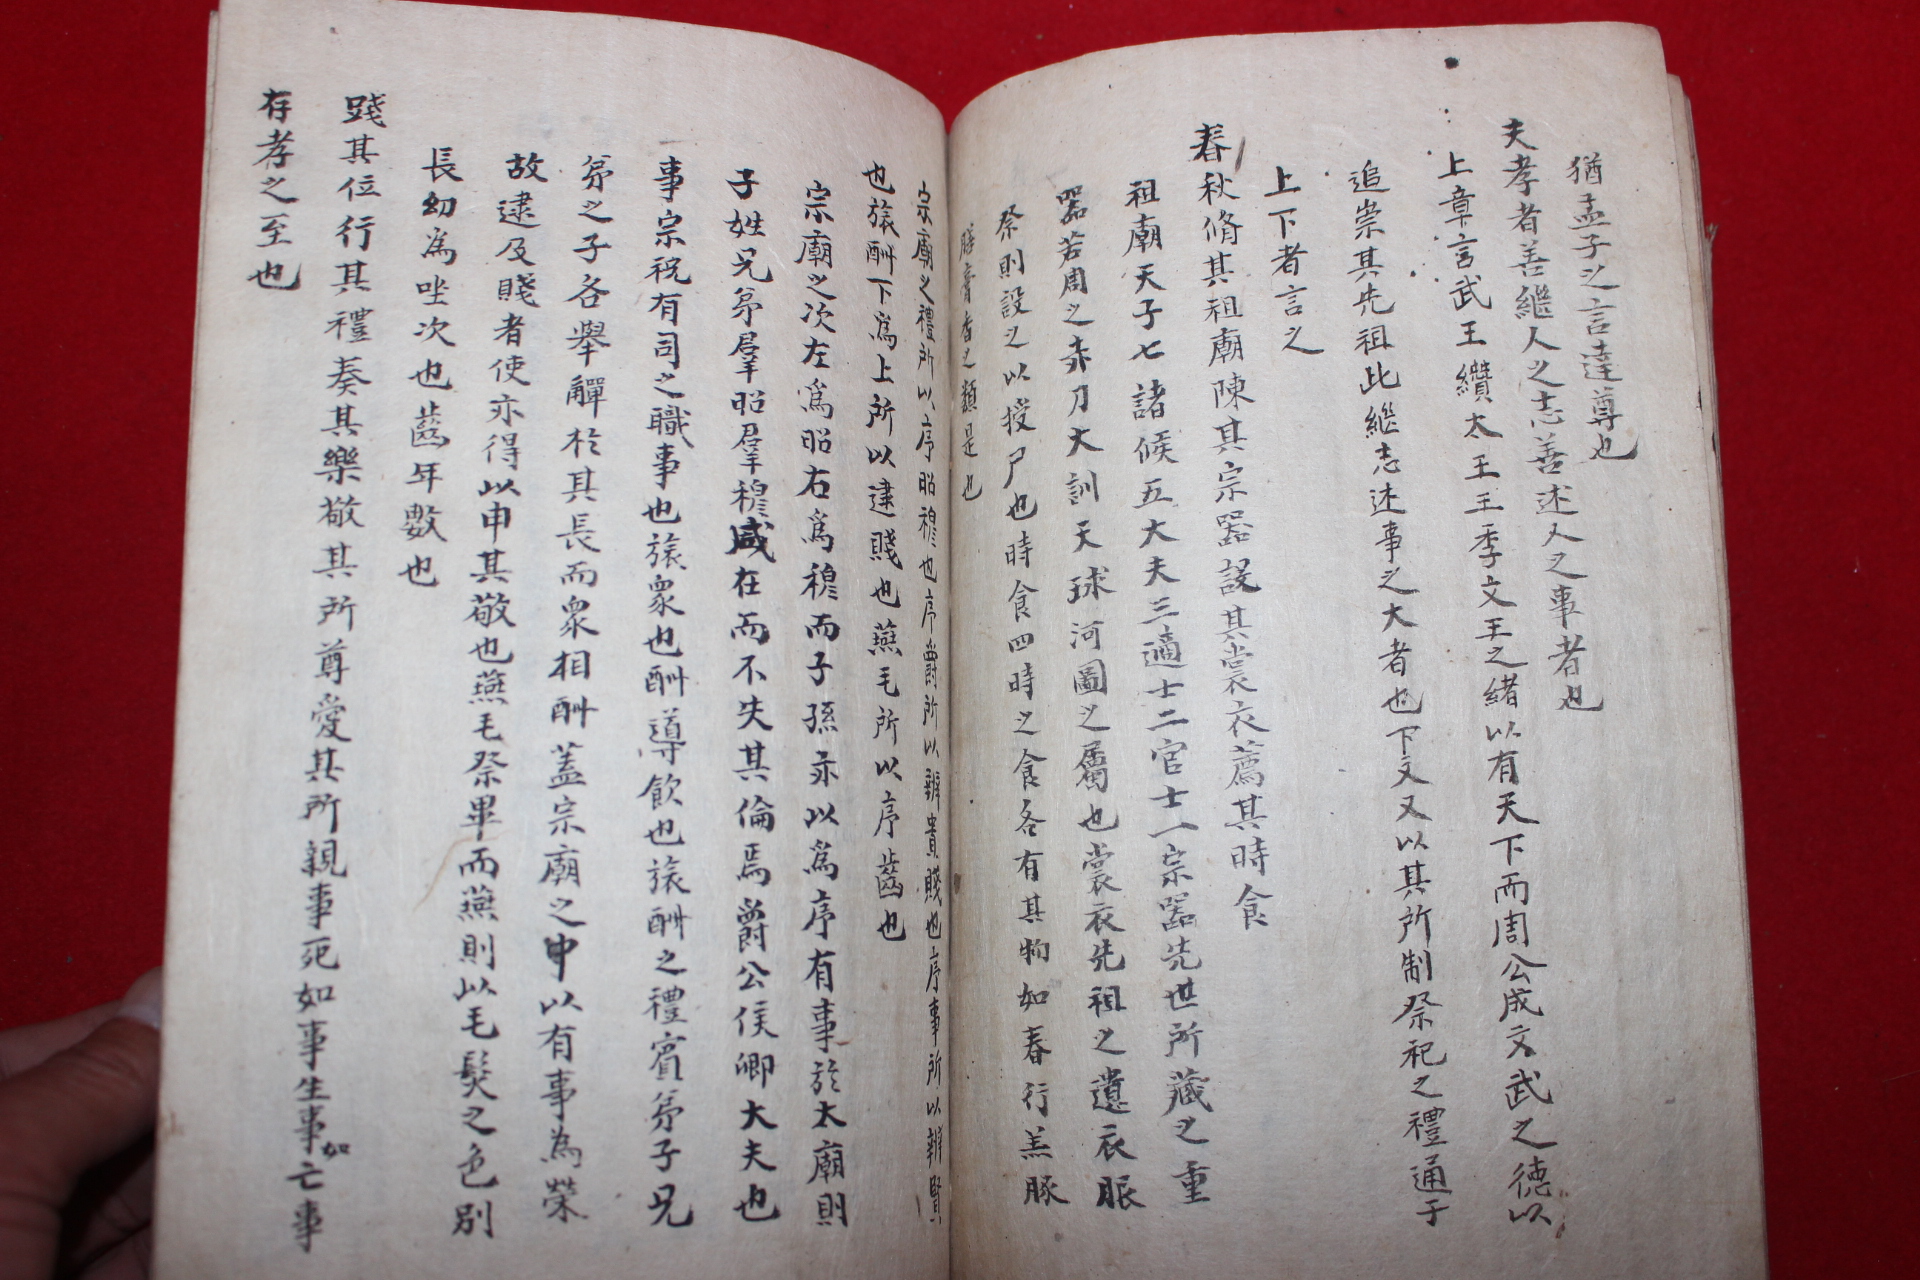 猶孟子之言達尊也
夫孝者善繼人之志善述人之事者也
上章言武王纘太王王季文王之緒以有天下而周公成文武之德以
追崇其先祖此繼志述事之大者也下文又以其所制祭祀之禮通于
上下者言之
春秋脩其祖廟陳其宗器設其裳衣薦其時食
祖廟天子七諸候五大夫三適士二官士一宗器先世所藏之重
器若周之赤刀大訓天球河圖之屬也裳衣先祖之遺衣服
祭則設之以授尸也時食四時之食各有其物如春行羔豚
膳膏香之類是也
宗廟之禮所以序昭穆也序爵所以辨貴賤也序事所以辨賢
也旅酬下為上所以逮賤也燕毛所以序齒也
宗廟之次左爲昭右爲穆而子孫亦以爲序有事於太廟則
子姓兄弟羣昭羣穆咸在而不失其倫焉爵公侯卿大夫也
事宗祝有司之職事也旅衆也酬導飮也旅酬之禮賓弟子兄
弟之子各舉觶於其長而衆相酬盖宗廟之中以有事為榮
故逮及賤者使亦得以申其敬也燕毛祭畢而燕則以毛髮之色別
長幼為坐次也齒年數也
踐其位行其禮奏其樂敬其所尊愛其所親事死如事生事如亡事
存孝之至也